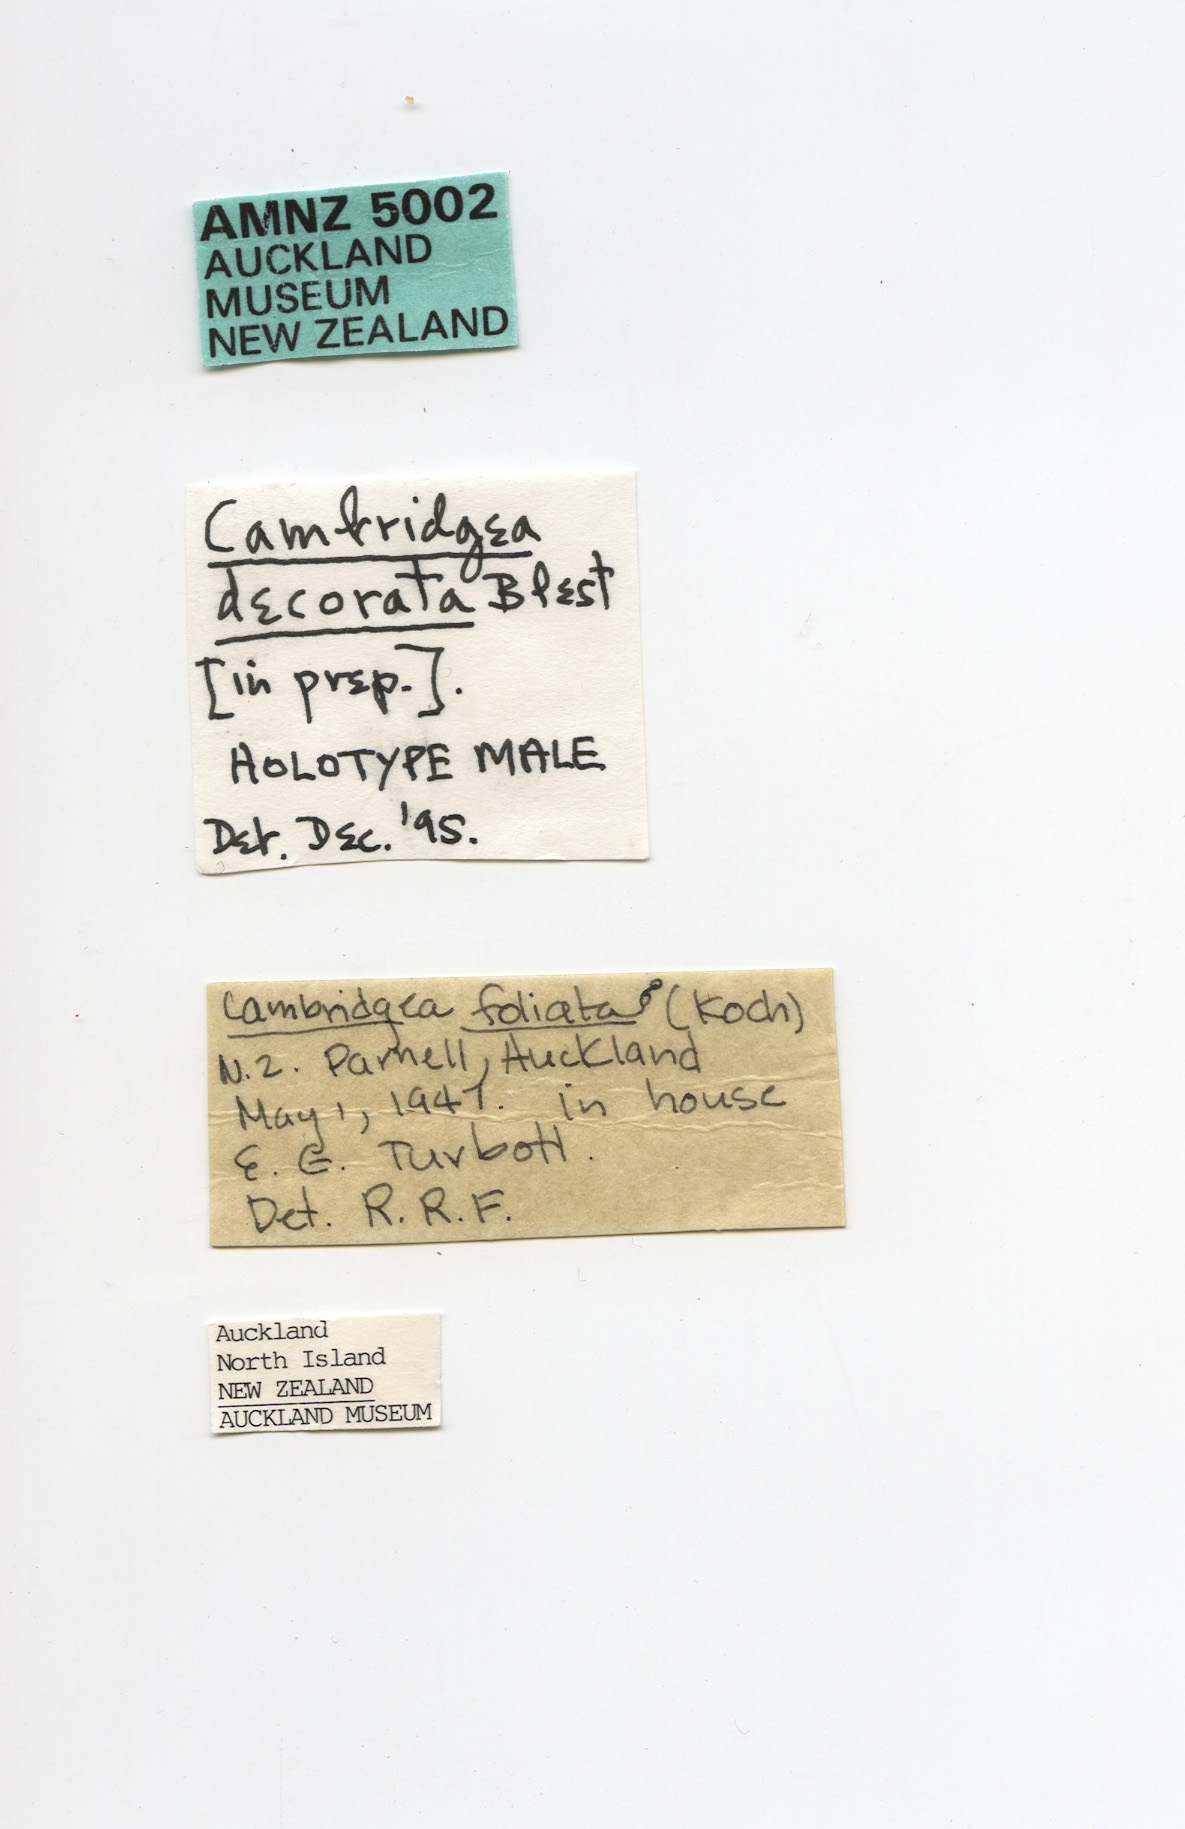 AMNZ 5002
AUCKLAND
MUSEUM
NEW ZEALAND
Cambridgea
decorata Blest
[in prep.].
HOLOTYPE MALE
Det. Dec. '95.
Cambridgea foliata ♂ (Koch)
N.Z. Parnell, Auckland
May 1, 1947. in house
E. G. Turbott.
Det. R. R. F.
Auckland
North Island
NEW ZEALAND
AUCKLAND MUSEUM